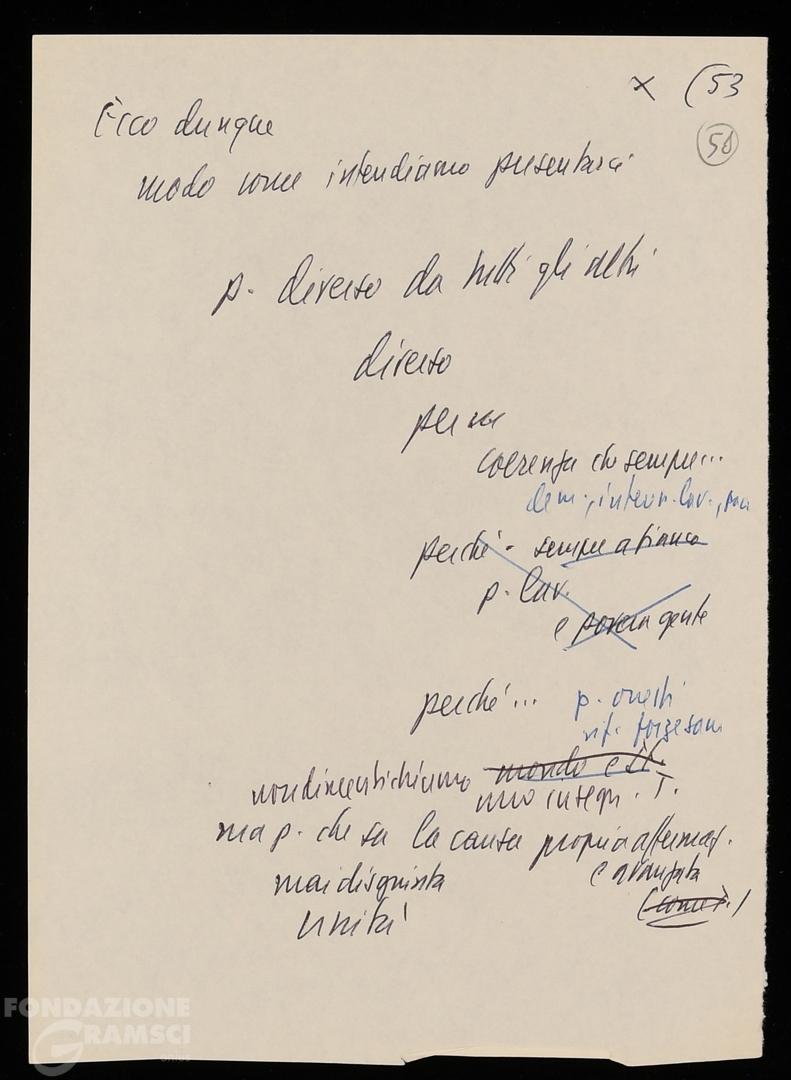 x (53
58
Ecco dunque
modo come intendiamo presentarci
p. diverso da tutti gli altri
diverso
per sua
coerenza che sempre...
dem., intern. lav.,
perché - sempre a fianco
p. lav.
e povera gente
perché... p. onesti
rif. forze sane
non dimentichiamo mondo est.
mo integr. T.
ma p. che sa la causa propria affermaz.
e avanzata
mai disgiunta
(come)
unità
FONDAZIONE
GRAMSCI
onlus